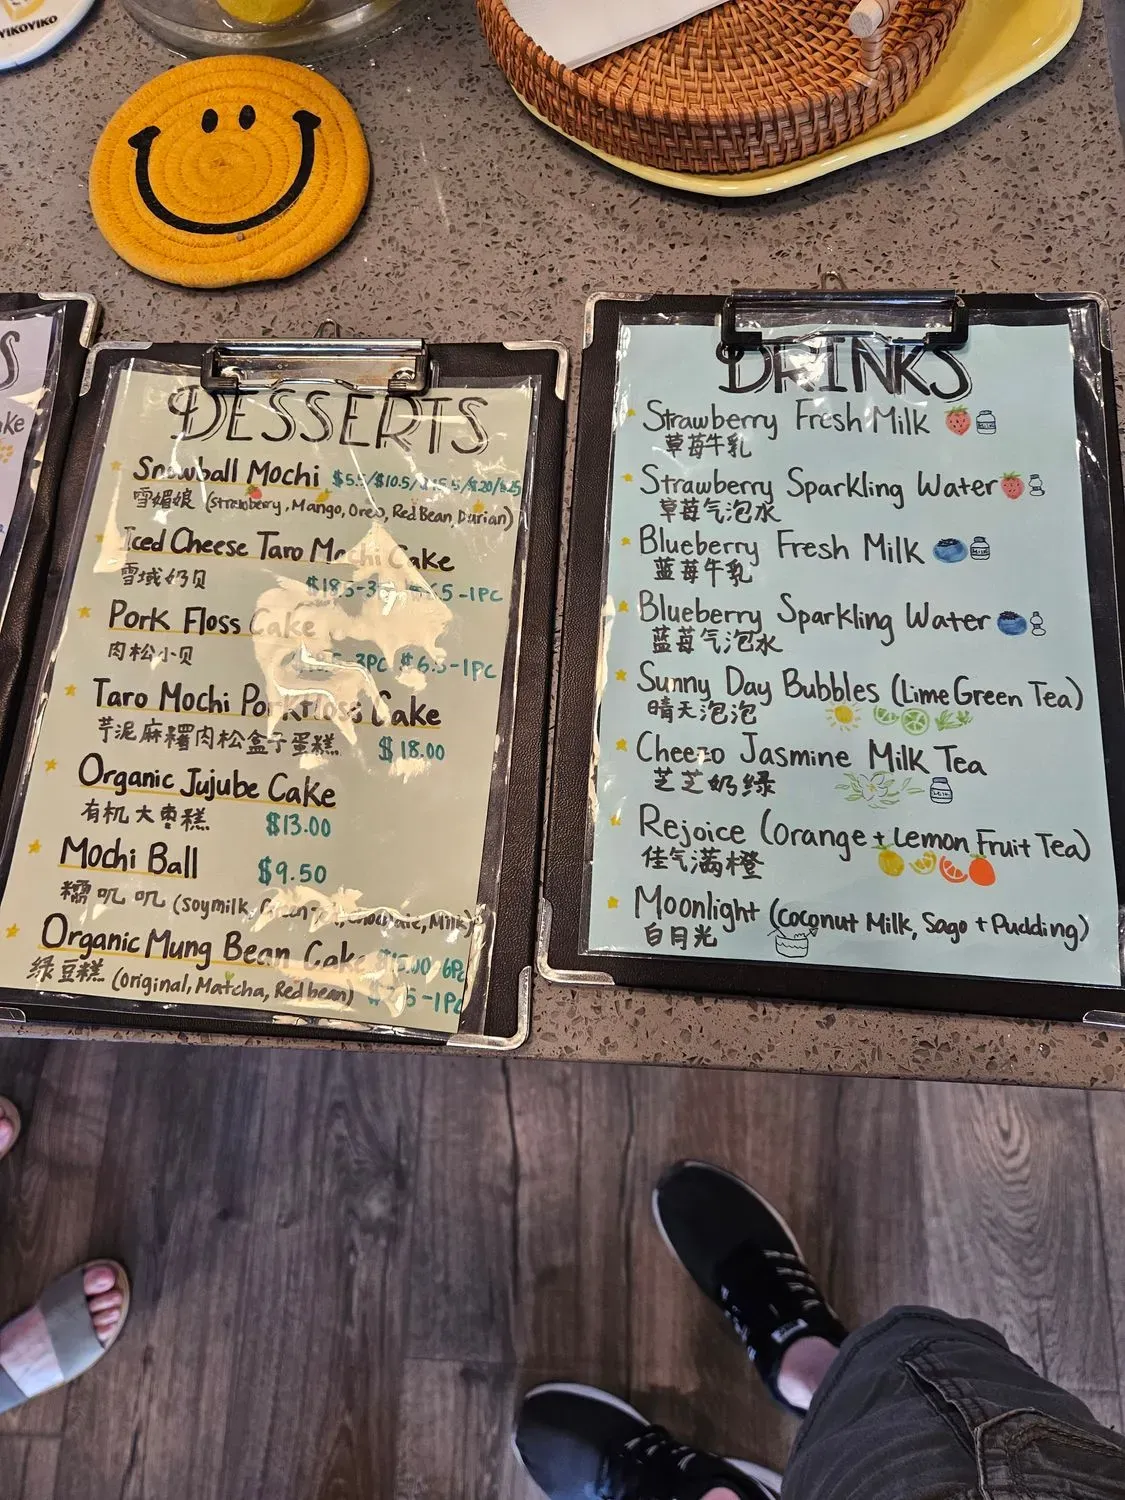 YIKOYIKO
S
ake
DESSERTS
Snowball Mochi $5.5/$10.5/$15.5/$20/$25
雪媚娘 (strawberry, Mango, Oreo, Red Bean, Durian)
Iced Cheese Taro Mochi Cake
雪域奶贝 $18.5-3 6.5-1PC
Pork Floss Cake
肉松小贝 3PC $6.5-1PC
Taro Mochi Porkfloss Cake
芋泥麻糬肉松盒子蛋糕 $18.00
Organic Jujube Cake
有机大枣糕 $13.00
Mochi Ball $9.50
糯叽叽 (soymilk, Green Chocolate, Milk)
Organic Mung Bean Cake $15.00 6PC
绿豆糕 (original, Matcha, Redbean) -1PC
DRINKS
Strawberry Fresh Milk
草莓牛乳
Strawberry Sparkling Water
草莓气泡水
Blueberry Fresh Milk
蓝莓牛乳
Blueberry Sparkling Water
蓝莓气泡水
Sunny Day Bubbles (Lime Green Tea)
晴天泡泡
Cheezo Jasmine Milk Tea
芝芝奶绿
Rejoice (Orange + Lemon Fruit Tea)
佳气满橙
Moonlight (Coconut Milk, Sago + Pudding)
白月光